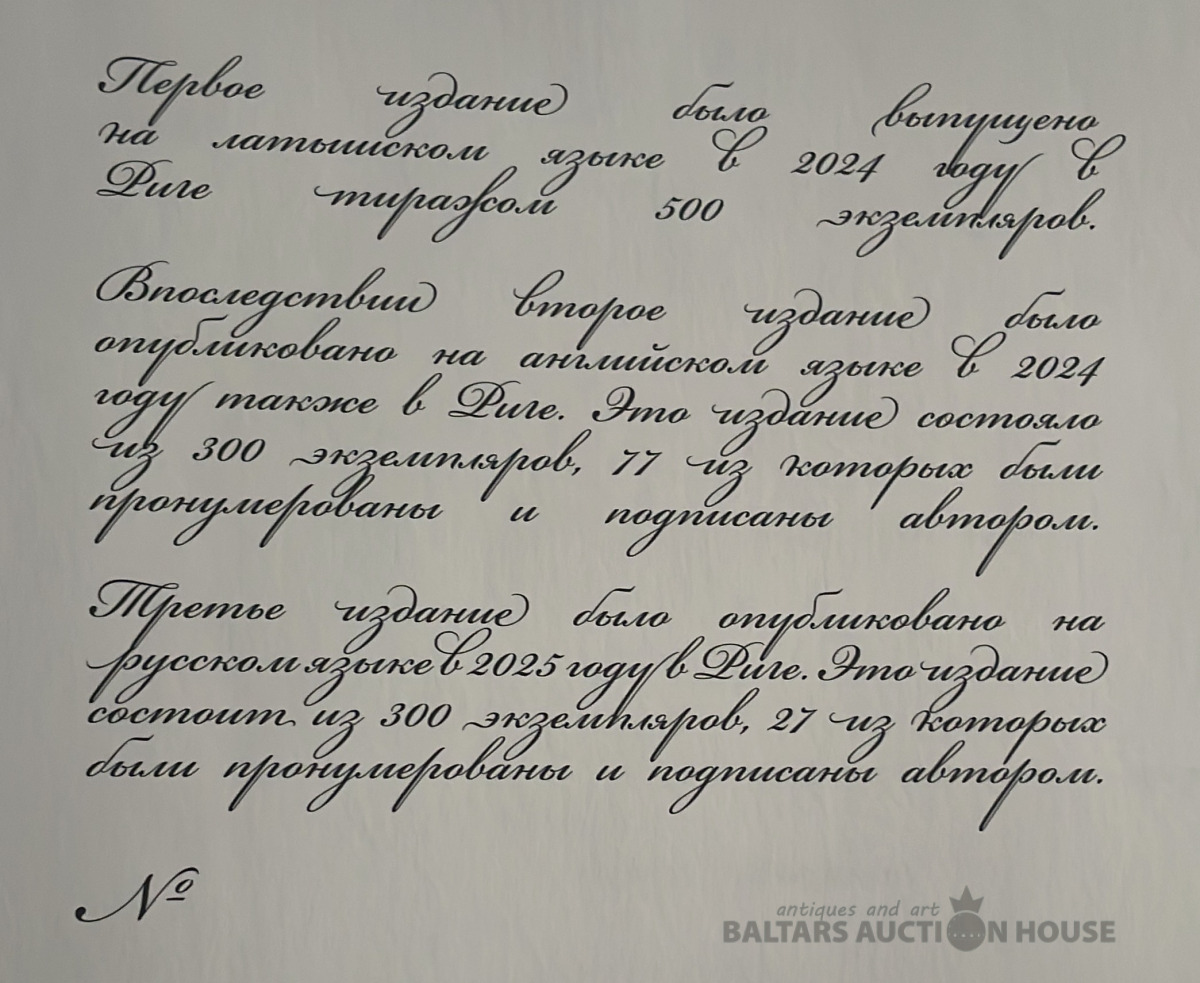 Первое издание было выпущено
на латышском языке в 2024 году в
Риге тиражом 500 экземпляров.
Впоследствии второе издание было
опубликовано на английском языке в 2024
году также в Риге. Это издание состояло
из 300 экземпляров, 77 из которых были
пронумерованы и подписаны автором.
Третье издание было опубликовано на
русском языке в 2025 году в Риге. Это издание
состоит из 300 экземпляров, 27 из которых
были пронумерованы и подписаны автором.
№
antiques and art
BALTARS AUCTION HOUSE